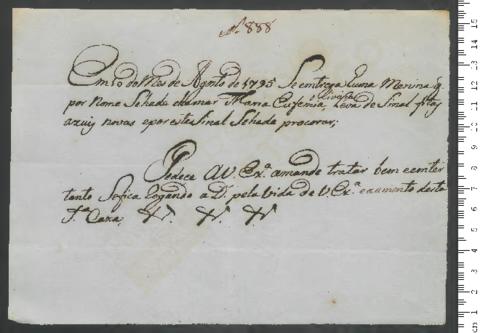 N. 888
Em 10 do Mes de Agosto de 1795 Se entrega huma Menina q.
por Nome Sehade chamar Maria Eufemia Leva de Sinal fitas
azuis novas e por este Sinal Sehade procurar;
Pedece a V. Ex.ª a mande tratar bem e
tanto Sefica Rogando a D.ˢ pela Vida de V. Ex.ª e aumento desta
S.ᵗᵃ Caza